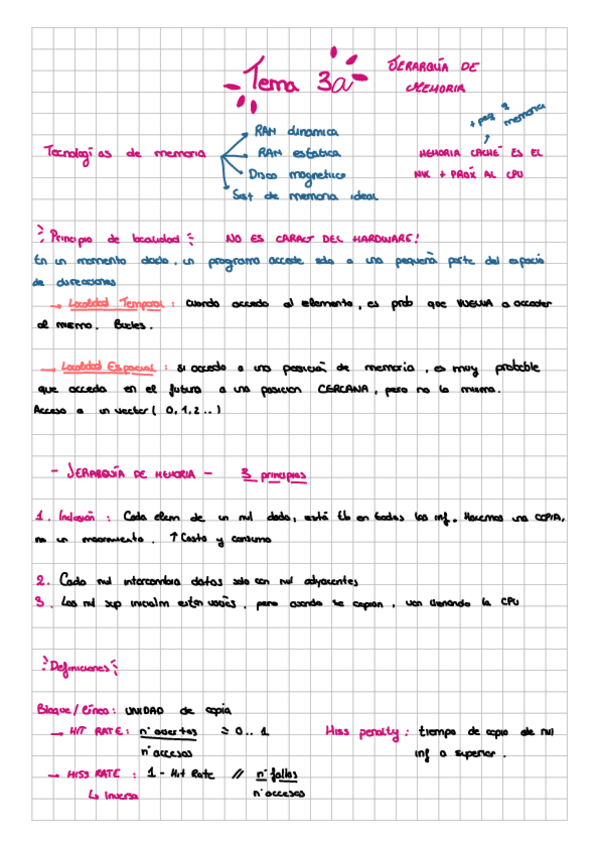 Tema 3a JERARQUÍA DE
MEMORIA
+ peq
memoria
RAM dinamica
Tecnologías de memoria RAM estatica MEMORIA CACHÉ ES EL
Disco magnetico NIVL + PRÓX AL CPU
Sist de memoria ideal
Principio de localidad : NO ES CARACT DEL HARDWARE!
En un momento dado, un programa accede solo a una pequeña parte del espacio
de direcciones
→ Localidad Temporal : cuando accedo al elemento, es prob que VUELVA a acceder
al mismo. Bucles.
→ Localidad Espacial : si accedo a una posición de memoria, es muy probable
que acceda en el futuro a una posicion CERCANA, pero no la misma.
Acceso a un vector ( 0, 1, 2 .. )
- JERARQUÍA DE MEMORIA - 3 principios
1. Inclusión : Cada elem de un nvl dado, está tb en todos los inf. Hacemos una COPIA,
no un movimiento. ↑ Costo y consumo
2. Cada nvl intercambia datos solo con nvl adyacentes
3. Los nvl sup inicialm están vacíos, pero cuando se copian, van llenando la CPU
Definiciones
Bloque / Línea : UNIDAD de copia
→ HIT RATE : nº aciertos 0 .. 1 Miss penalty : tiempo de copia de nvl
nº accesos inf a superior.
→ MISS RATE : 1 - Hit Rate // nº fallos
↳ Inversa nº accesos